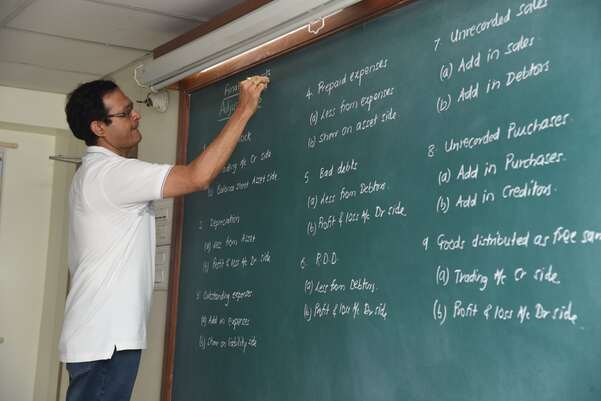 Final
Adju
ock
Trading A/c Cr side
(b) Balance sheet Asset side
2. Depreciation
(a) Less from Asset
(b) Profit & loss A/c Dr side.
3. Outstanding expenses
(a) Add in expenses
(b) Show on liability side
4. Prepaid expenses
(a) Less from expenses
(b) Show on asset side
5 Bad debts
(a) Less from Debtors.
(b) Profit & loss A/c Dr side.
6 R.D.D.
(a) Less from Debtors.
(b) Profit & loss A/c Dr side.
7. Unrecorded sales
(a) Add in sales
(b) Add in Debtors
8. Unrecorded Purchases.
(a) Add in Purchases.
(b) Add in Creditors.
9 Goods distributed as free sam
(a) Trading A/c Cr side.
(b) Profit & loss A/c Dr side.